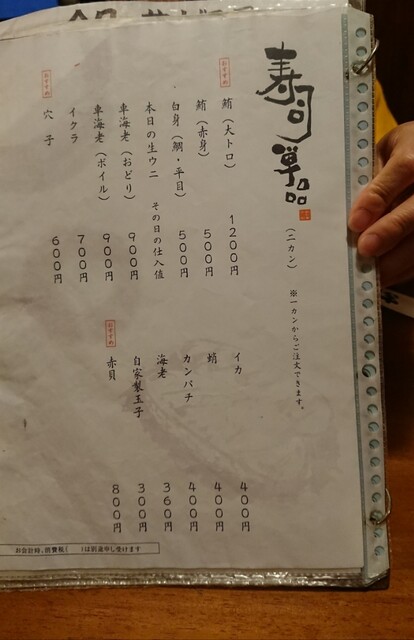 寿司単品
(二カン)
※一カンからご注文できます。
おすすめ
鮪(大トロ) 1200円
鮪(赤身) 500円
白身(鯛・平目) 500円
本日の生ウニ その日の仕入値
車海老(おどり) 900円
車海老(ボイル) 900円
イクラ 700円
おすすめ
穴子 600円
イカ 400円
蛸 400円
カンパチ 400円
海老 360円
自家製玉子 300円
おすすめ
赤貝 800円
お会計時、消費税( )は別途申し受けます